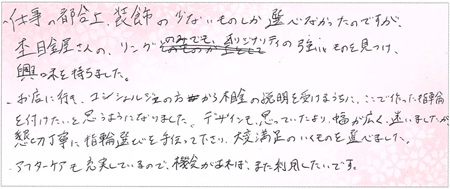 ・仕事の都合上、装飾の少ないものしか選べなかったのですが、
杢目金屋さんの、リングのみでも、オリジナリティの強いものを見つけ、
興味を持ちました。
・お店に行き、コンシェルジュの方から木目金の説明を受けるうちに、ここで作った指輪
を付けたいと思うようになりました。デザインも、思っていたより、幅が広く、迷いましたが
懇切丁寧に指輪選びを手伝って下さり、大変満足のいくものを選べました。
・アフターケアも充実しているので、機会があれば、また利用したいです。